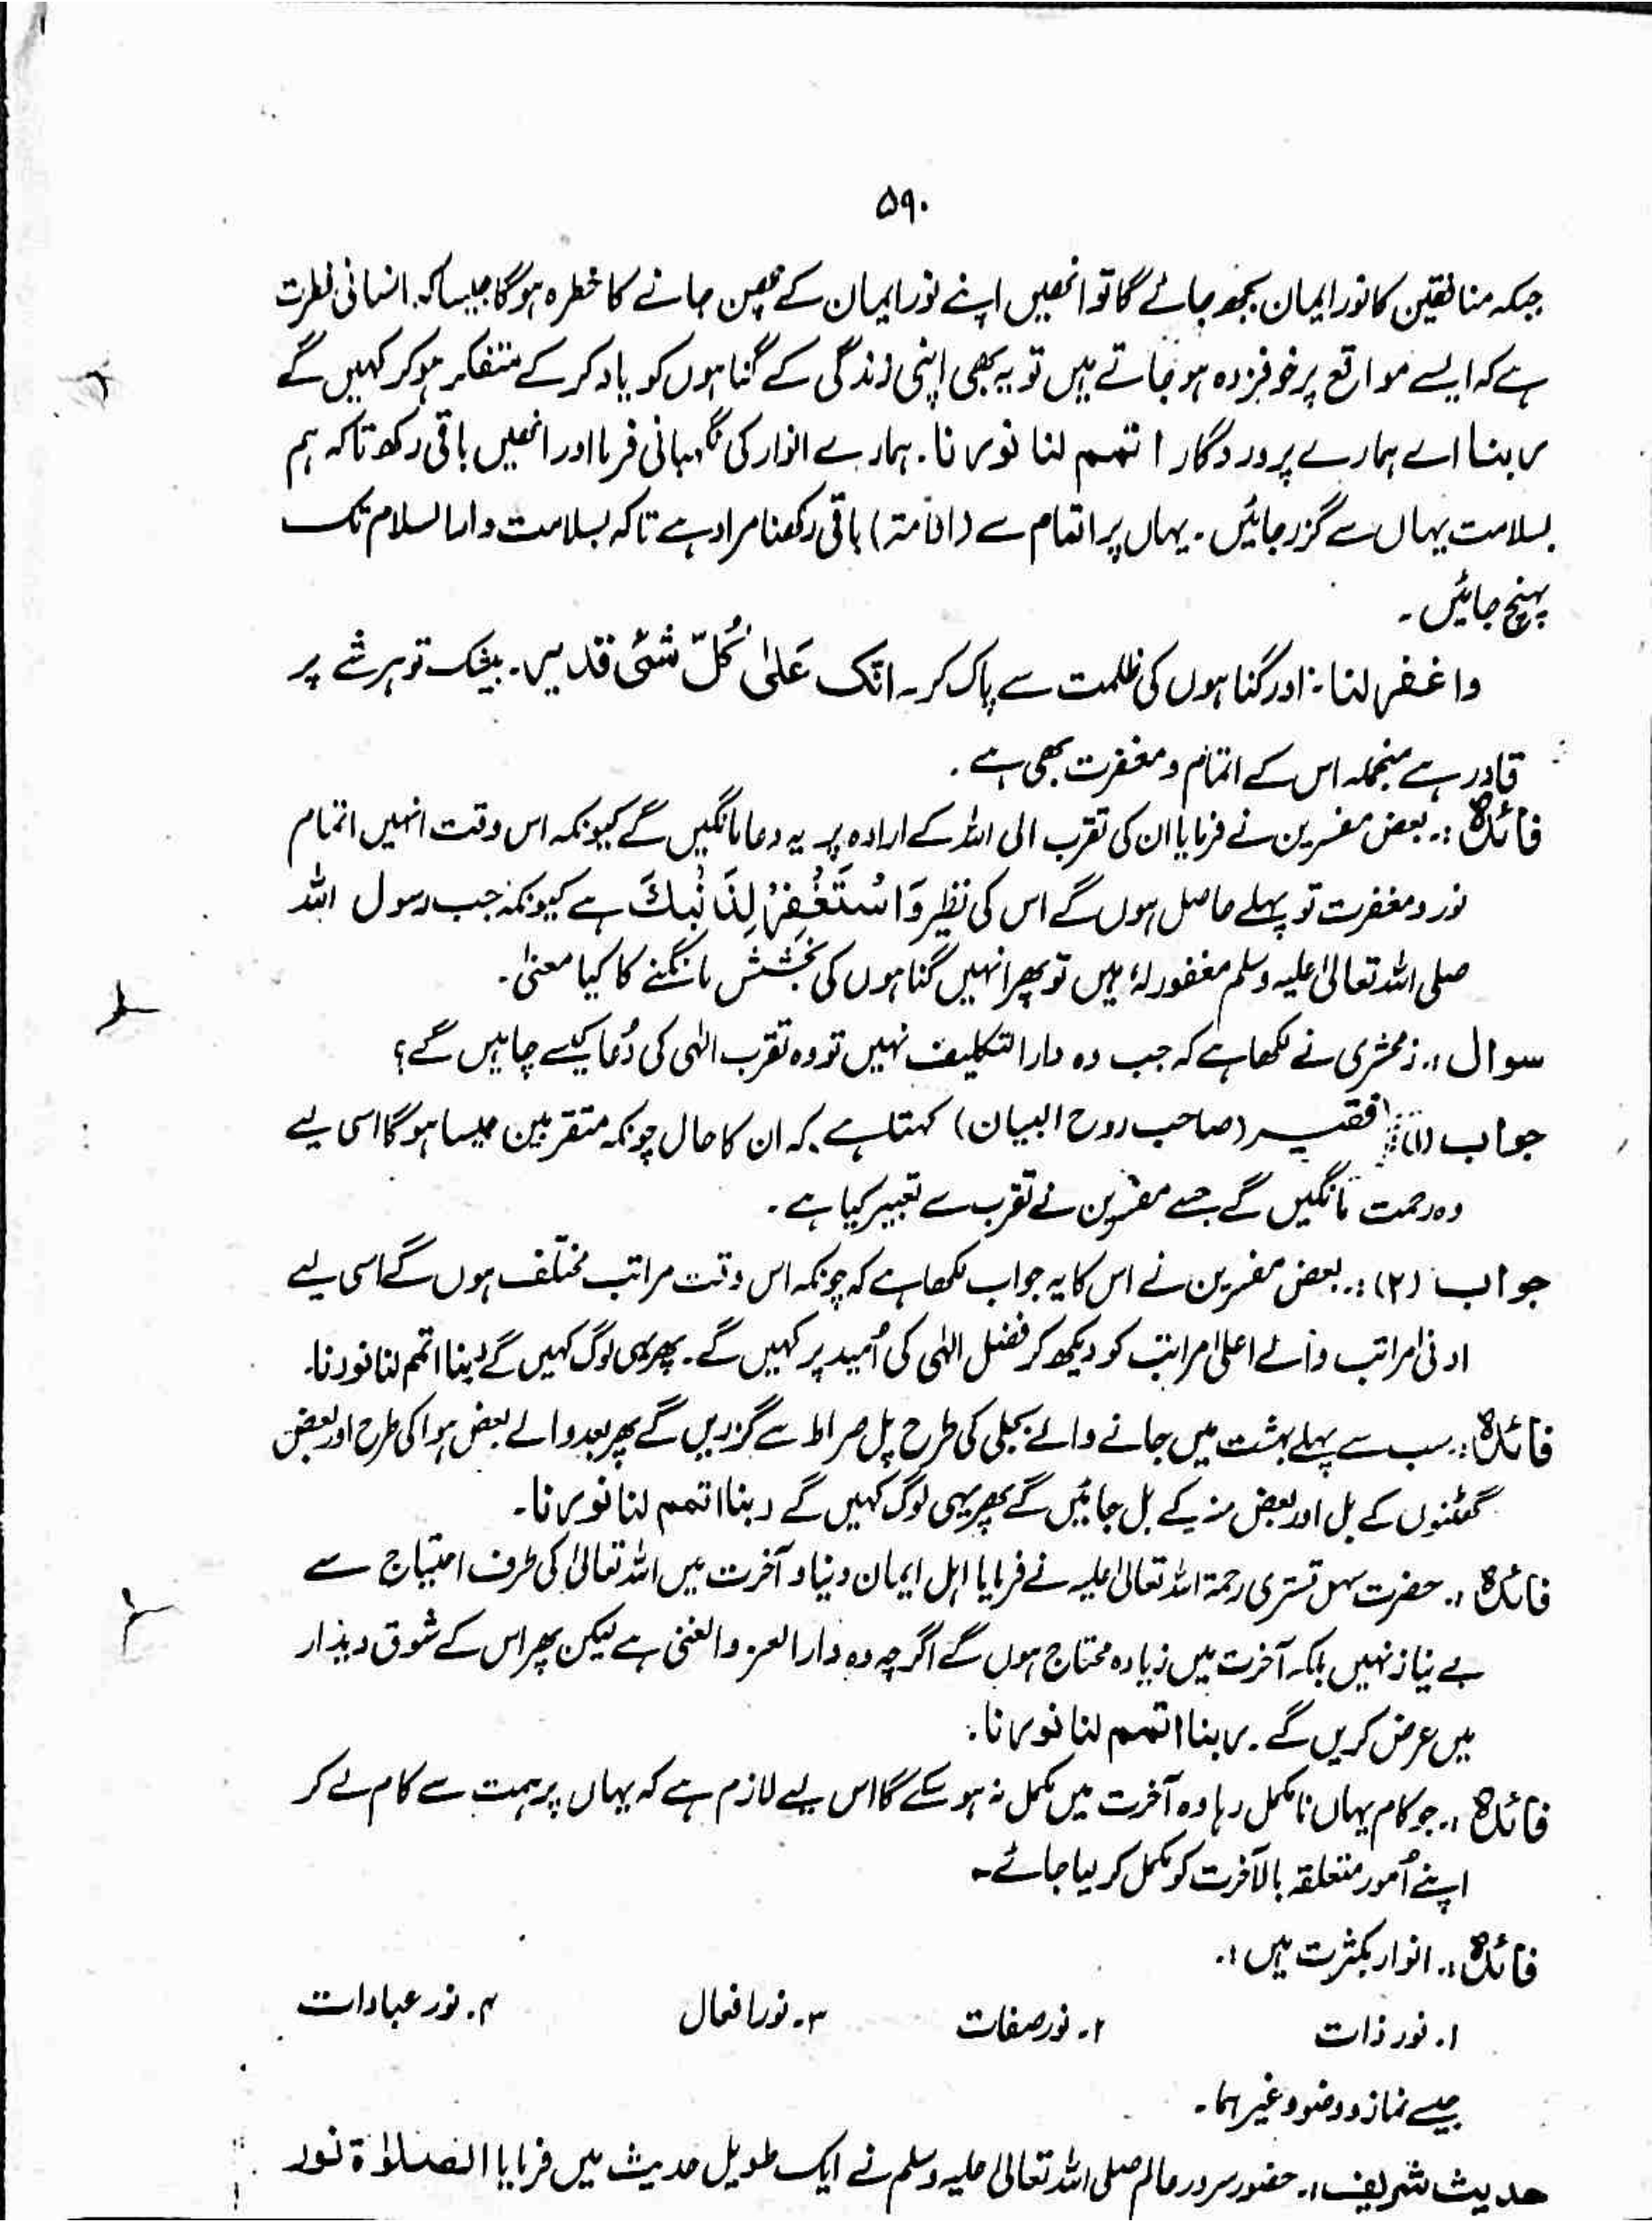 ۵۹۰
جبکہ منافقین کا نور ایمان بجھ جائے گا تو انھیں اپنے نور ایمان کے چھن جانے کا خطرہ ہوگا جیسا کہ انسانی فطرت
ہے کہ ایسے مواقع پر خوفزدہ ہو جاتے ہیں تو یہ بھی اپنی زندگی کے گناہوں کو یاد کر کے متفکر ہو کر کہیں گے
ربنا اے ہمارے پروردگار اتمم لنا نورنا۔ ہمارے انوار کی نگہبانی فرما اور انھیں باقی رکھ تاکہ ہم
بسلامت یہاں سے گزر جائیں۔ یہاں پر اتمام سے (اقامۃ) باقی رکھنا مراد ہے تاکہ بسلامت دارالسلام تک
پہنچ جائیں۔
واغفر لنا:۔ اور گناہوں کی ظلمت سے پاک کر۔ انک عَلیٰ کُلّ شئی قدیر۔ بیشک تو ہر شے پر
قادر ہے منجملہ اس کے اتمام و مغفرت بھی ہے۔
فائدہ:۔ بعض مفسرین نے فرمایا ان کی تقرب الی اللہ کے ارادہ پر یہ دعا مانگیں گے کیونکہ اس وقت انہیں اتمام
نور و مغفرت تو پہلے حاصل ہوں گے اس کی نظیر وَاسْتَغْفِرْ لِذَنْبِكَ ہے کیونکہ جب رسول اللہ
صلی اللہ تعالیٰ علیہ وسلم مغفور لہٗ ہیں تو پھر انہیں گناہوں کی بخشش مانگنے کا کیا معنیٰ۔
سوال:۔ زمخشری نے لکھا ہے کہ جب وہ دار التکلیف نہیں تو وہ تقرب الٰہی کی دُعا کیسے چاہیں گے؟
جواب (۱):۔ فقیر (صاحب روح البیان) کہتا ہے کہ ان کا حال چونکہ متقربین جیسا ہوگا اسی لیے
وہ رحمت مانگیں گے جسے مفسرین نے تقرب سے تعبیر کیا ہے۔
جواب (۲):۔ بعض مفسرین نے اس کا یہ جواب لکھا ہے کہ چونکہ اس وقت مراتب مختلف ہوں گے اسی لیے
ادنیٰ مراتب والے اعلیٰ مراتب کو دیکھ کر فضل الٰہی کی اُمید پر کہیں گے۔ پھر یہی لوگ کہیں گے ربنا اتمم لنا نورنا۔
فائدہ:۔ سب سے پہلے بہشت میں جانے والے بجلی کی طرح پل صراط سے گزریں گے پھر بعد والے بعض ہوا کی طرح اور بعض
گھٹنوں کے بل اور بعض منہ کے بل جائیں گے پھر یہی لوگ کہیں گے ربنا اتمم لنا نورنا۔
فائدہ:۔ حضرت سہل تستری رحمۃ اللہ تعالیٰ علیہ نے فرمایا اہل ایمان دنیا و آخرت میں اللہ تعالیٰ کی طرف احتیاج سے
بے نیاز نہیں بلکہ آخرت میں زیادہ محتاج ہوں گے اگرچہ وہ دارالعز والغنیٰ ہے لیکن پھر اس کے شوق دیدار
میں عرض کریں گے۔ ربنا اتمم لنا نورنا۔
فائدہ:۔ جو کام یہاں نامکمل رہا وہ آخرت میں مکمل نہ ہو سکے گا اس لیے لازم ہے کہ یہاں پر ہمت سے کام لے کر
اپنے اُمور متعلقہ بالآخرت کو مکمل کر لیا جائے۔
فائدہ:۔ انوار بکثرت ہیں:۔
۱۔ نور ذات ۲۔ نور صفات ۳۔ نور افعال ۴۔ نور عبادات
جیسے نماز و وضو وغیرہما۔
حدیث شریف:۔ حضور سرور عالم صلی اللہ تعالیٰ علیہ وسلم نے ایک طویل حدیث میں فرمایا الصلوٰۃ نور